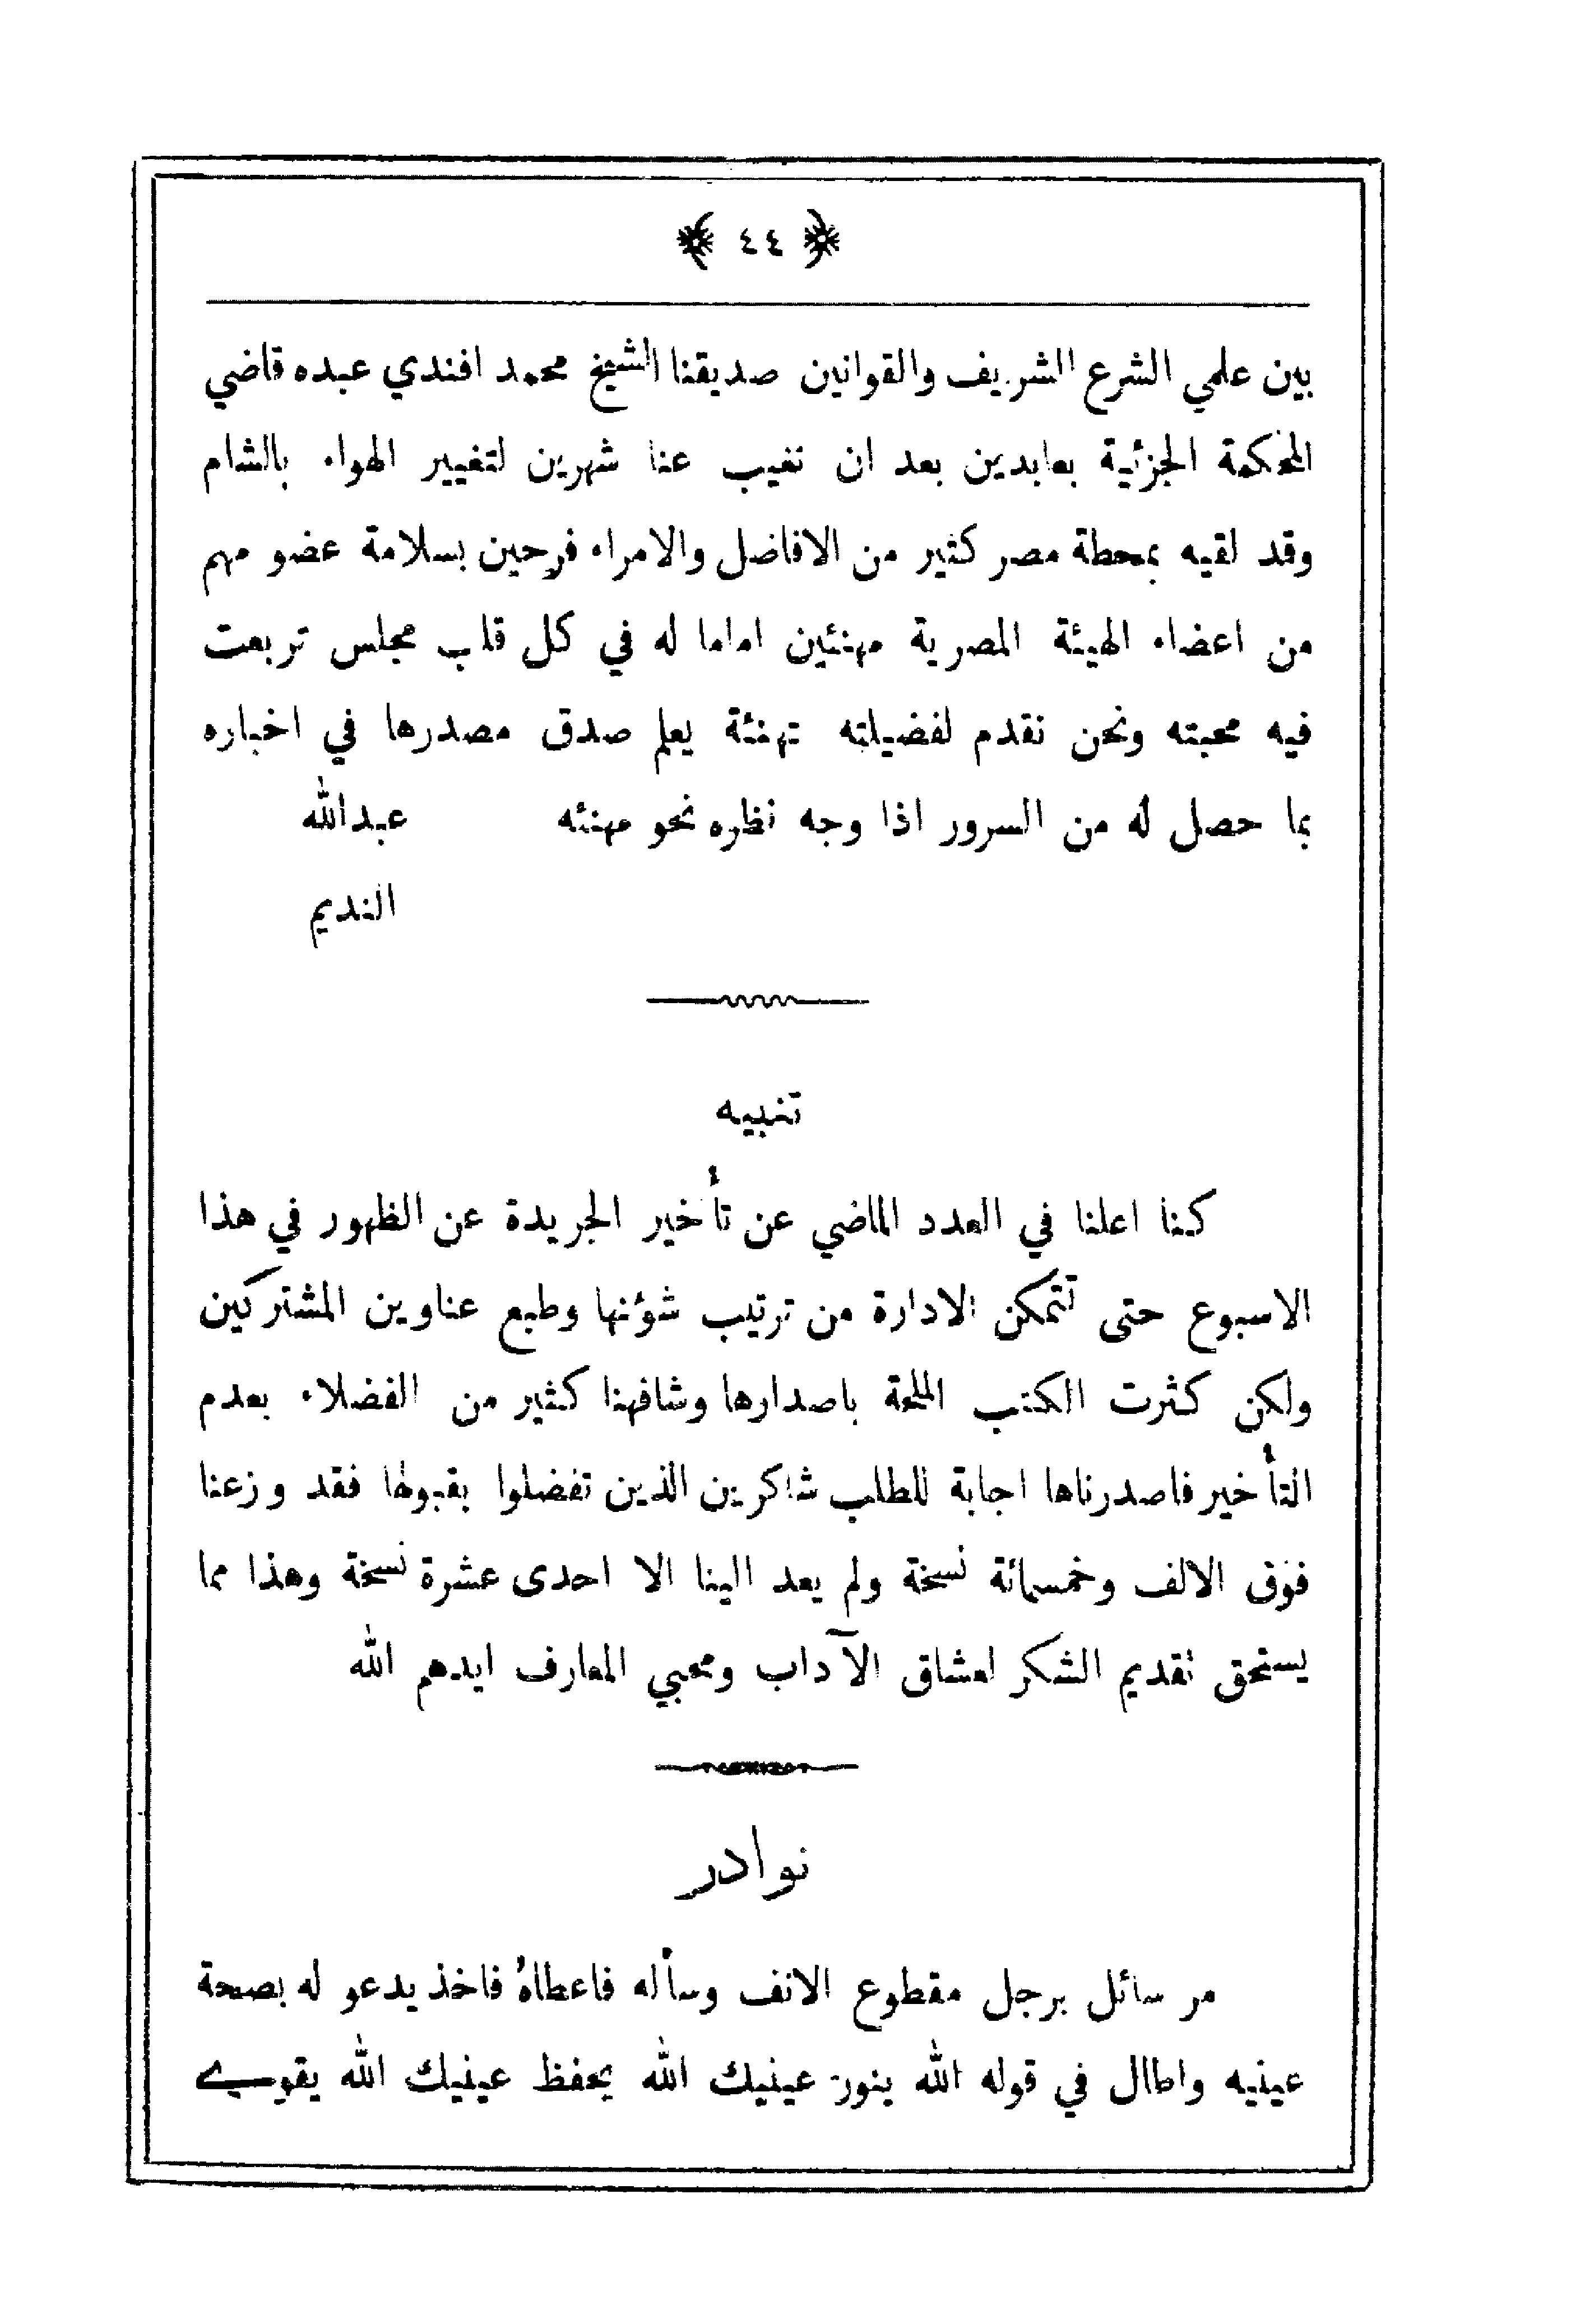 ﴿ ٤٤ ﴾
بين علمي الشرع الشريف والقوانين صديقنا الشيخ محمد افندي عبده قاضي
المحكمة الجزئية بعابدين بعد ان تغيب عنا شهرين لتغيير الهواء بالشام
وقد لقيه بمحطة مصر كثير من الافاضل والامراء فرحين بسلامة عضو مهم
من اعضاء الهيئة المصرية مهنئين اماما له في كل قلب مجلس تربعت
فيه محبته ونحن نقدم لفضيلته تهنئة يعلم صدق مصدرها في اخباره
بما حصل له من السرور اذا وجه نظره نحو مهنئه عبدالله
النديم
تنبيه
كنا اعلنا في العدد الماضي عن تأخير الجريدة عن الظهور في هذا
الاسبوع حتى تتمكن الادارة من ترتيب شؤنها وطبع عناوين المشتركين
ولكن كثرت الكتب الملحة باصدارها وشافهنا كثير من الفضلاء بعدم
التأخير فاصدرناها اجابة للطلب شاكرين الذين تفضلوا بقبولها فقد وزعنا
فوق الالف وخمسمائة نسخة ولم يعد الينا الا احدى عشرة نسخة وهذا مما
يستحق تقديم الشكر لعشاق الآداب ومحبي المعارف ايدهم الله
نوادر
مر سائل برجل مقطوع الانف وسأله فاعطاهُ فاخذ يدعو له بصحة
عينيه واطال في قوله الله ينور عينيك الله يحفظ عينيك الله يقوي